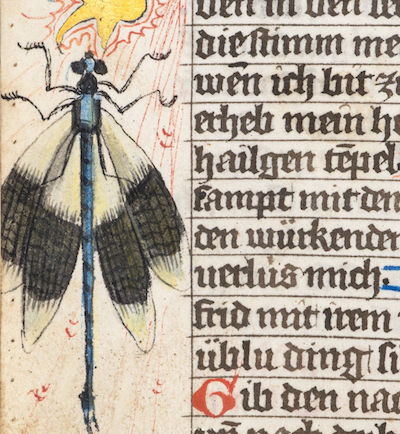 den in den le
diestimm me
wēn ich bit zu
erheb mein he
hailgen tēpel
sampt mit den
den würkenden
uerlüs mich.
frid mit irem
üblu ding si
Gib den nac